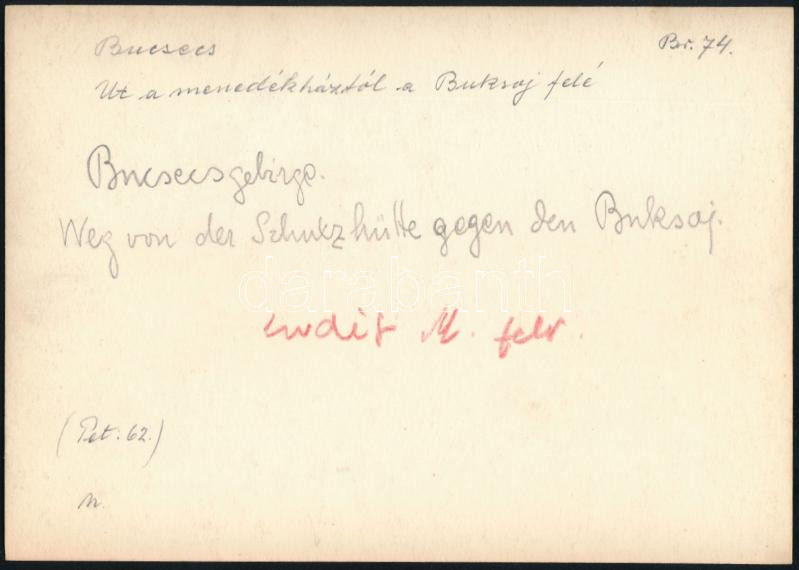 Bucsecs
Br. 74.
Út a menedékháztól a Buksoj felé
Bucsecsgebirge.
Weg von der Schutzhütte gegen den Buksoj.
darabanth
M. felv.
(Pet: 62.)
n.